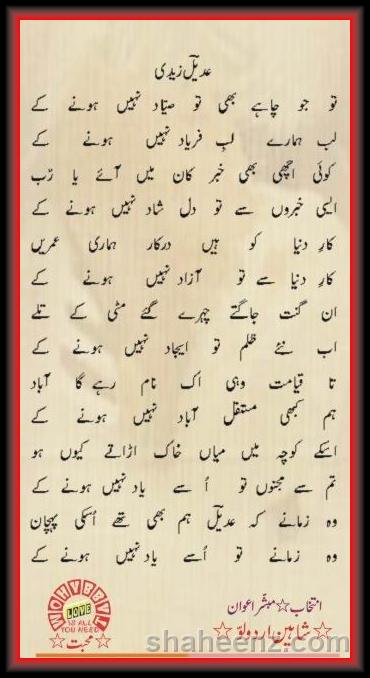 عدیلؔ زیدی
تو جو چاہے بھی تو صیّاد نہیں ہونے کے
لب ہمارے لبِ فریاد نہیں ہونے کے
کوئی اچھی بھی خبر کان میں آئے یا رَب
ایسی خبروں سے تو دل شاد نہیں ہونے کے
کارِ دنیا کو ہیں درکار ہماری عمریں
کارِ دنیا سے تو آزاد نہیں ہونے کے
ان گنت جاگتے چہرے گئے مٹی کے تلے
اب نئے ظلم تو ایجاد نہیں ہونے کے
تا قیامت وہی اک نام رہے گا آباد
ہم کبھی مستقل آباد نہیں ہونے کے
اسکے کوچہ میں میاں خاک اڑاتے کیوں ہو
تم سے مجنوں تو اُسے یاد نہیں ہونے کے
وہ زمانے کہ عدیلؔ ہم بھی تھے اُسکی پہچان
وہ زمانے تو اُسے یاد نہیں ہونے کے
انتخاب☆مبشّر اعوان
☆شاہین اردو لوّ☆
LOVE
IS ALL
YOU NEED
☆محبت☆
shaheenz.com